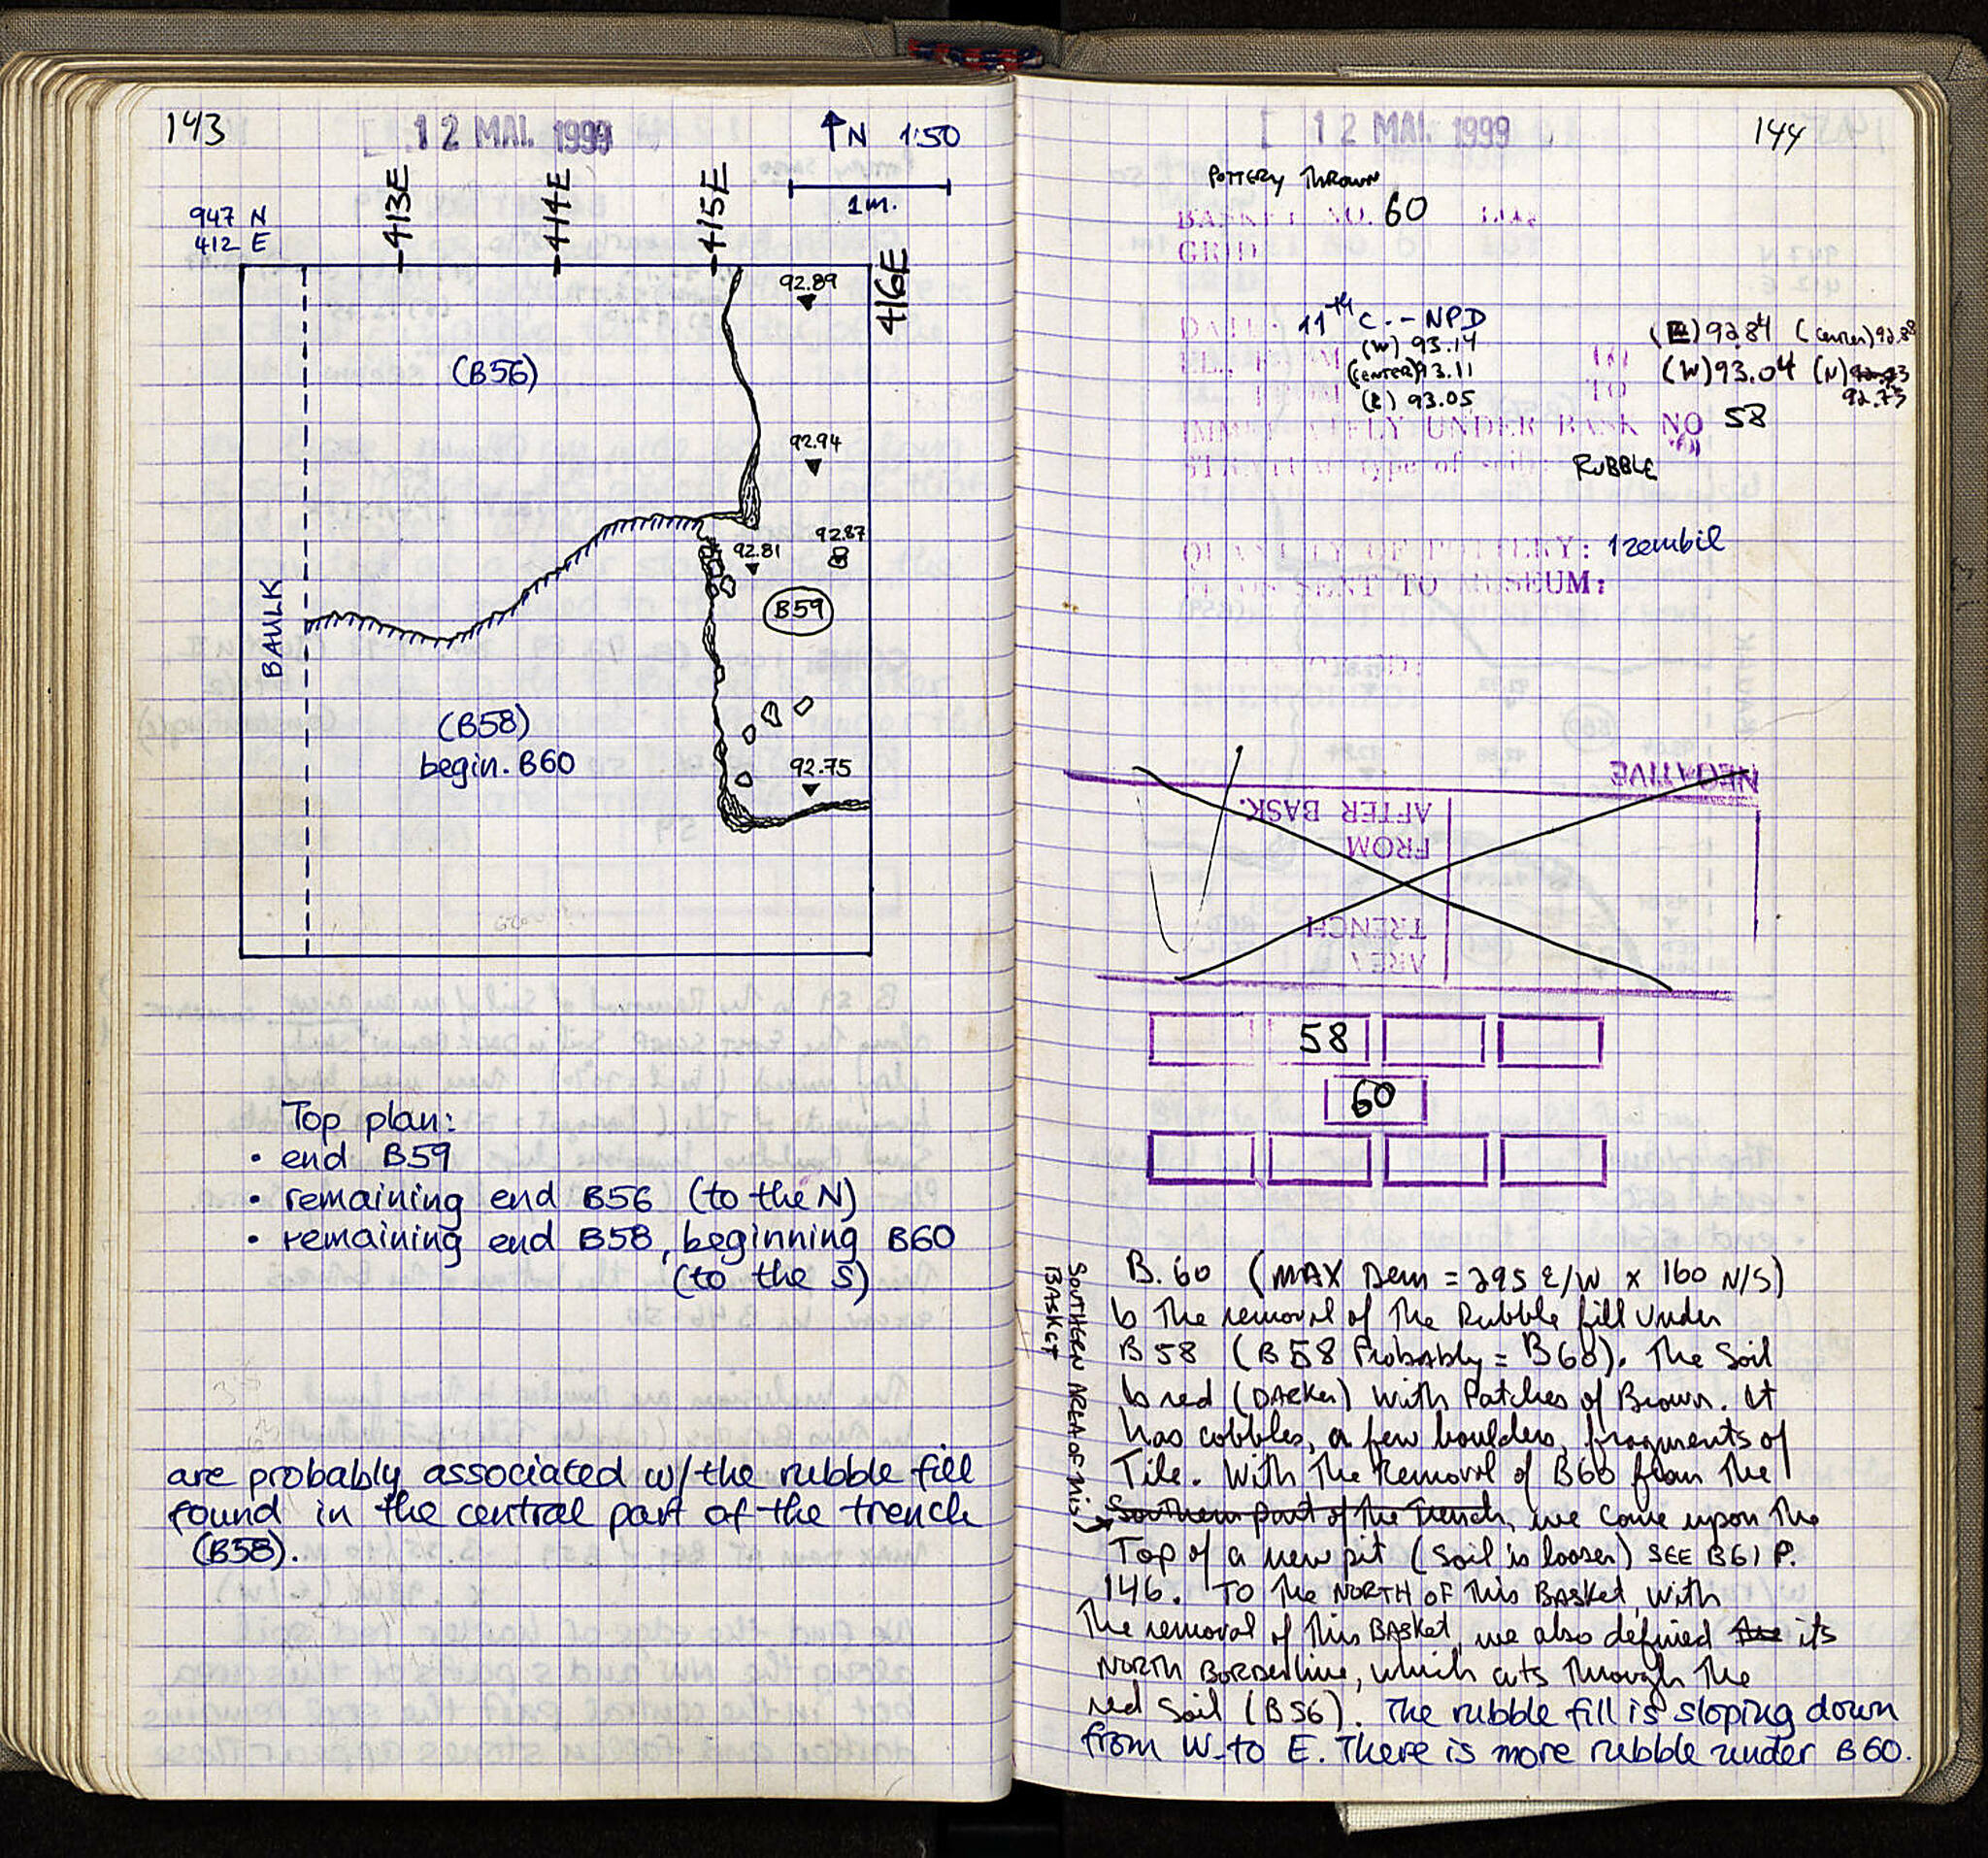 143
12 MAI. 1999
↑N 1:50
1m.
947 N
412 E
413E
414E
415E
416E
92.89
(B56)
92.94
92.87
92.81
B59
BAULK
(B58)
begin. B60
92.75
Top plan:
• end B59
• remaining end B56 (to the N)
• remaining end B58, beginning B60
(to the S)
are probably associated w/ the rubble fill
found in the central part of the trench
(B58).
12 MAI. 1999
144
POTTERY THROWN
BASKET NO. 60
GRID
DATE: 11th C. - NPD
(W) 93.14
(CENTER) 93.11
(E) 93.05
(E) 92.84 (center) 92.88
TO
(W) 93.04 (N)
TO
92.75
IMMEDIATELY UNDER BASK NO 58
type of soil: RUBBLE
QUANTITY OF POTTERY: 1 zembil
SENT TO MUSEUM:
NEGATIVE
AFTER BASK.
FROM
TRENCH
AREA
58
60
SOUTHERN AREA OF this
BASKET
B. 60 (MAX Dem = 295 E/W x 160 N/S)
is the removal of the Rubble fill under
B 58 (B 58 Probably = B60). The Soil
is red (DARKer) with Patches of Brown. It
has cobbles, a few boulders, fragments of
Tile. With the Removal of B60 from the
Southern part of the Trench, we come upon the
Top of a new pit (soil is looser) SEE B61 P.
146. TO the NORTH OF this BASKET, with
the removal of this BASket, we also defined the its
NORTH BORDERline, which cuts through the
red soil (B56). The rubble fill is sloping down
from W to E. There is more rubble under B60.